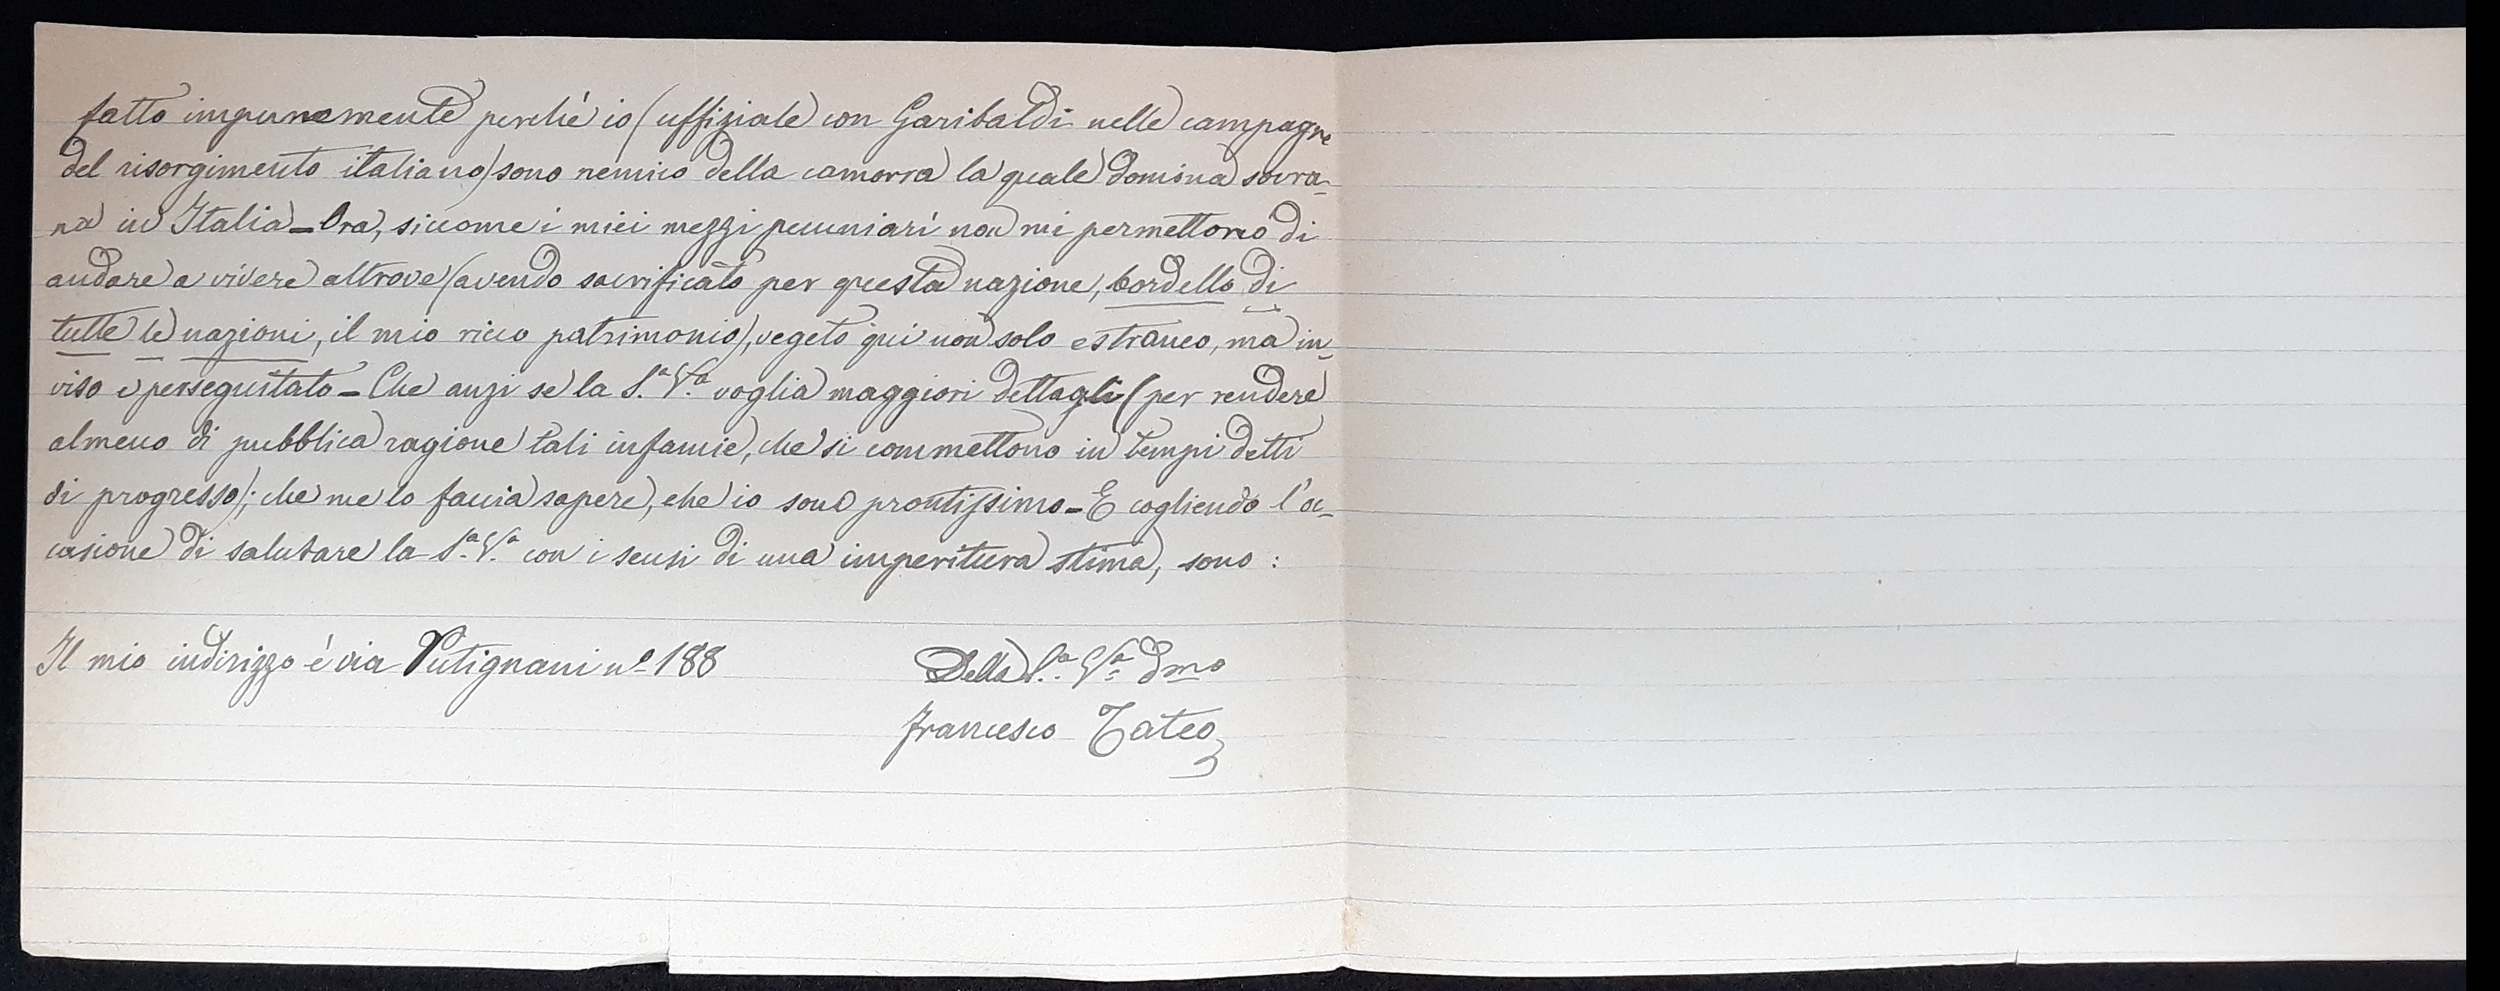 fatto impunemente perché io (uffiziale con Garibaldi nelle campagne
del risorgimento italiano) sono nemico della camorra la quale domina sovra-
na in Italia – Ora, siccome i miei mezzi pecuniarî non mi permettono di
andare a vivere altrove (avendo sacrificato per questa nazione, bordello di
tutte le nazioni, il mio ricco patrimonio), vegeto qui non solo estraneo, ma in-
viso e perseguitato – Che anzi se la S.ª V.ª voglia maggiori dettagli (per rendere
almeno di pubblica ragione tali infamie, che si commettono in tempi detti
di progresso); che me lo faccia sapere, che io sono prontissimo – E cogliendo l'oc-
casione di salutare la S.ª V.ª con i sensi di una imperitura stima, sono :
Il mio indirizzo é via Putignani nº 188
Della S.ª V.ª Dmo
Francesco Tateo